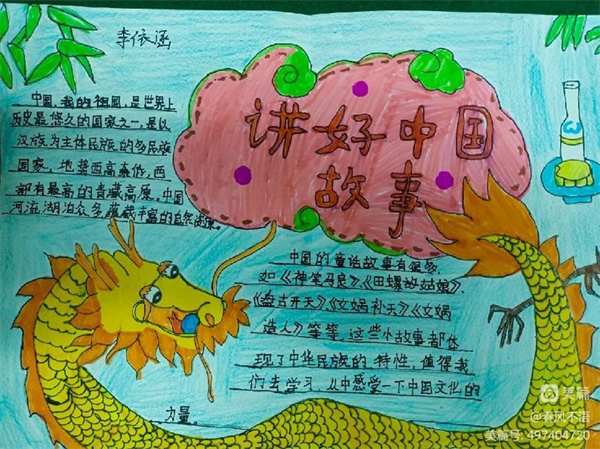 李依涵
讲好中国
故事
中国,我的祖国,是世界上
历史最悠久的国家之一,是以
汉族为主体民族的多民族
国家,地势西高东低,西
部有最高的青藏高原。中国
河流湖泊众多,蕴藏丰富的自然资源。
中国的童话故事有很多,
如《神笔马良》、《田螺故姑娘》、
《盘古开天》《女娲补天》《女娲
造人》等等,这些小故事都体
现了中华民族的特性,值得我
们去学习,从中感觉一下中国文化的
力量。
美篇
@春风不惜
美篇号: 497404720